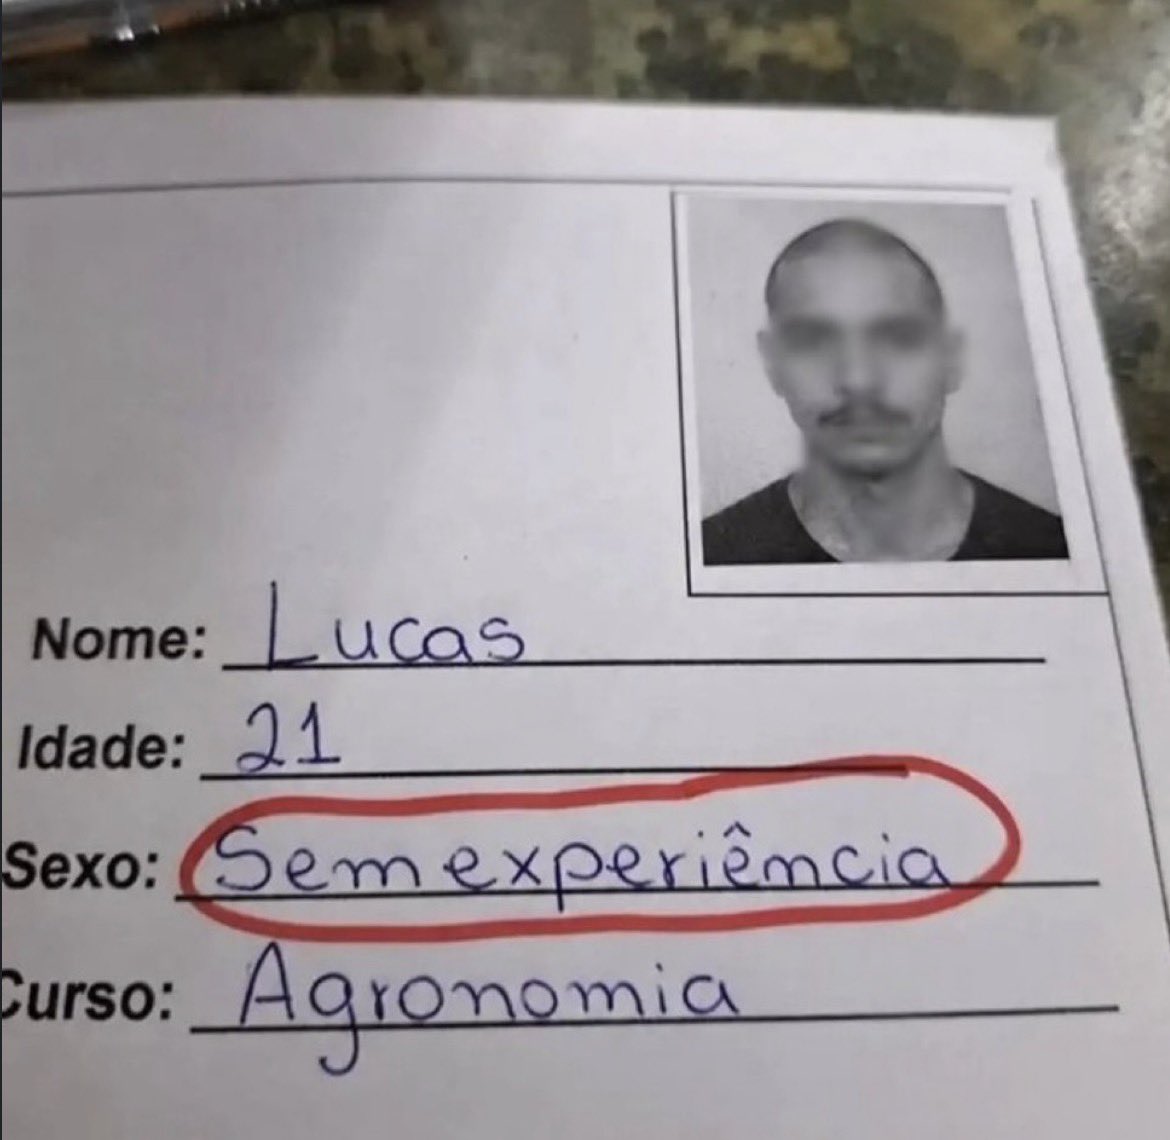 Nome: Lucas
Idade: 21
Sexo: Sem experiência
Curso: Agronomia